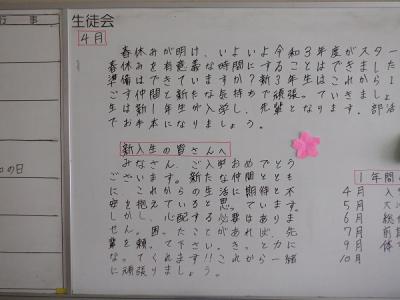 行事
の日
生徒会
4月
春休みが明け、いよいよ令和3年度がスター
春休みを有意義な時間にすることはできました
準備はできていますか?新3年生はこれから1
ごす仲間と新たな気持ちで頑張っていきましょ
生は新1年生が入学し、先輩となります。部活
でお手本になりましょう。
新入生の皆さんへ
みなさん、ご入学おめでとう
ございます。新たな仲間ととも
に、これからの生活に期待と不
安を抱えていると思っています。
しかし、心配する必要はありま
せん。困ったことがあれば、先
輩を頼って下さい。きっと力に
なってくれます!!これから一緒
に頑張りましょう。
1年間の
4月 入
5月 大
6月 総
7月 前
9月 体
10月